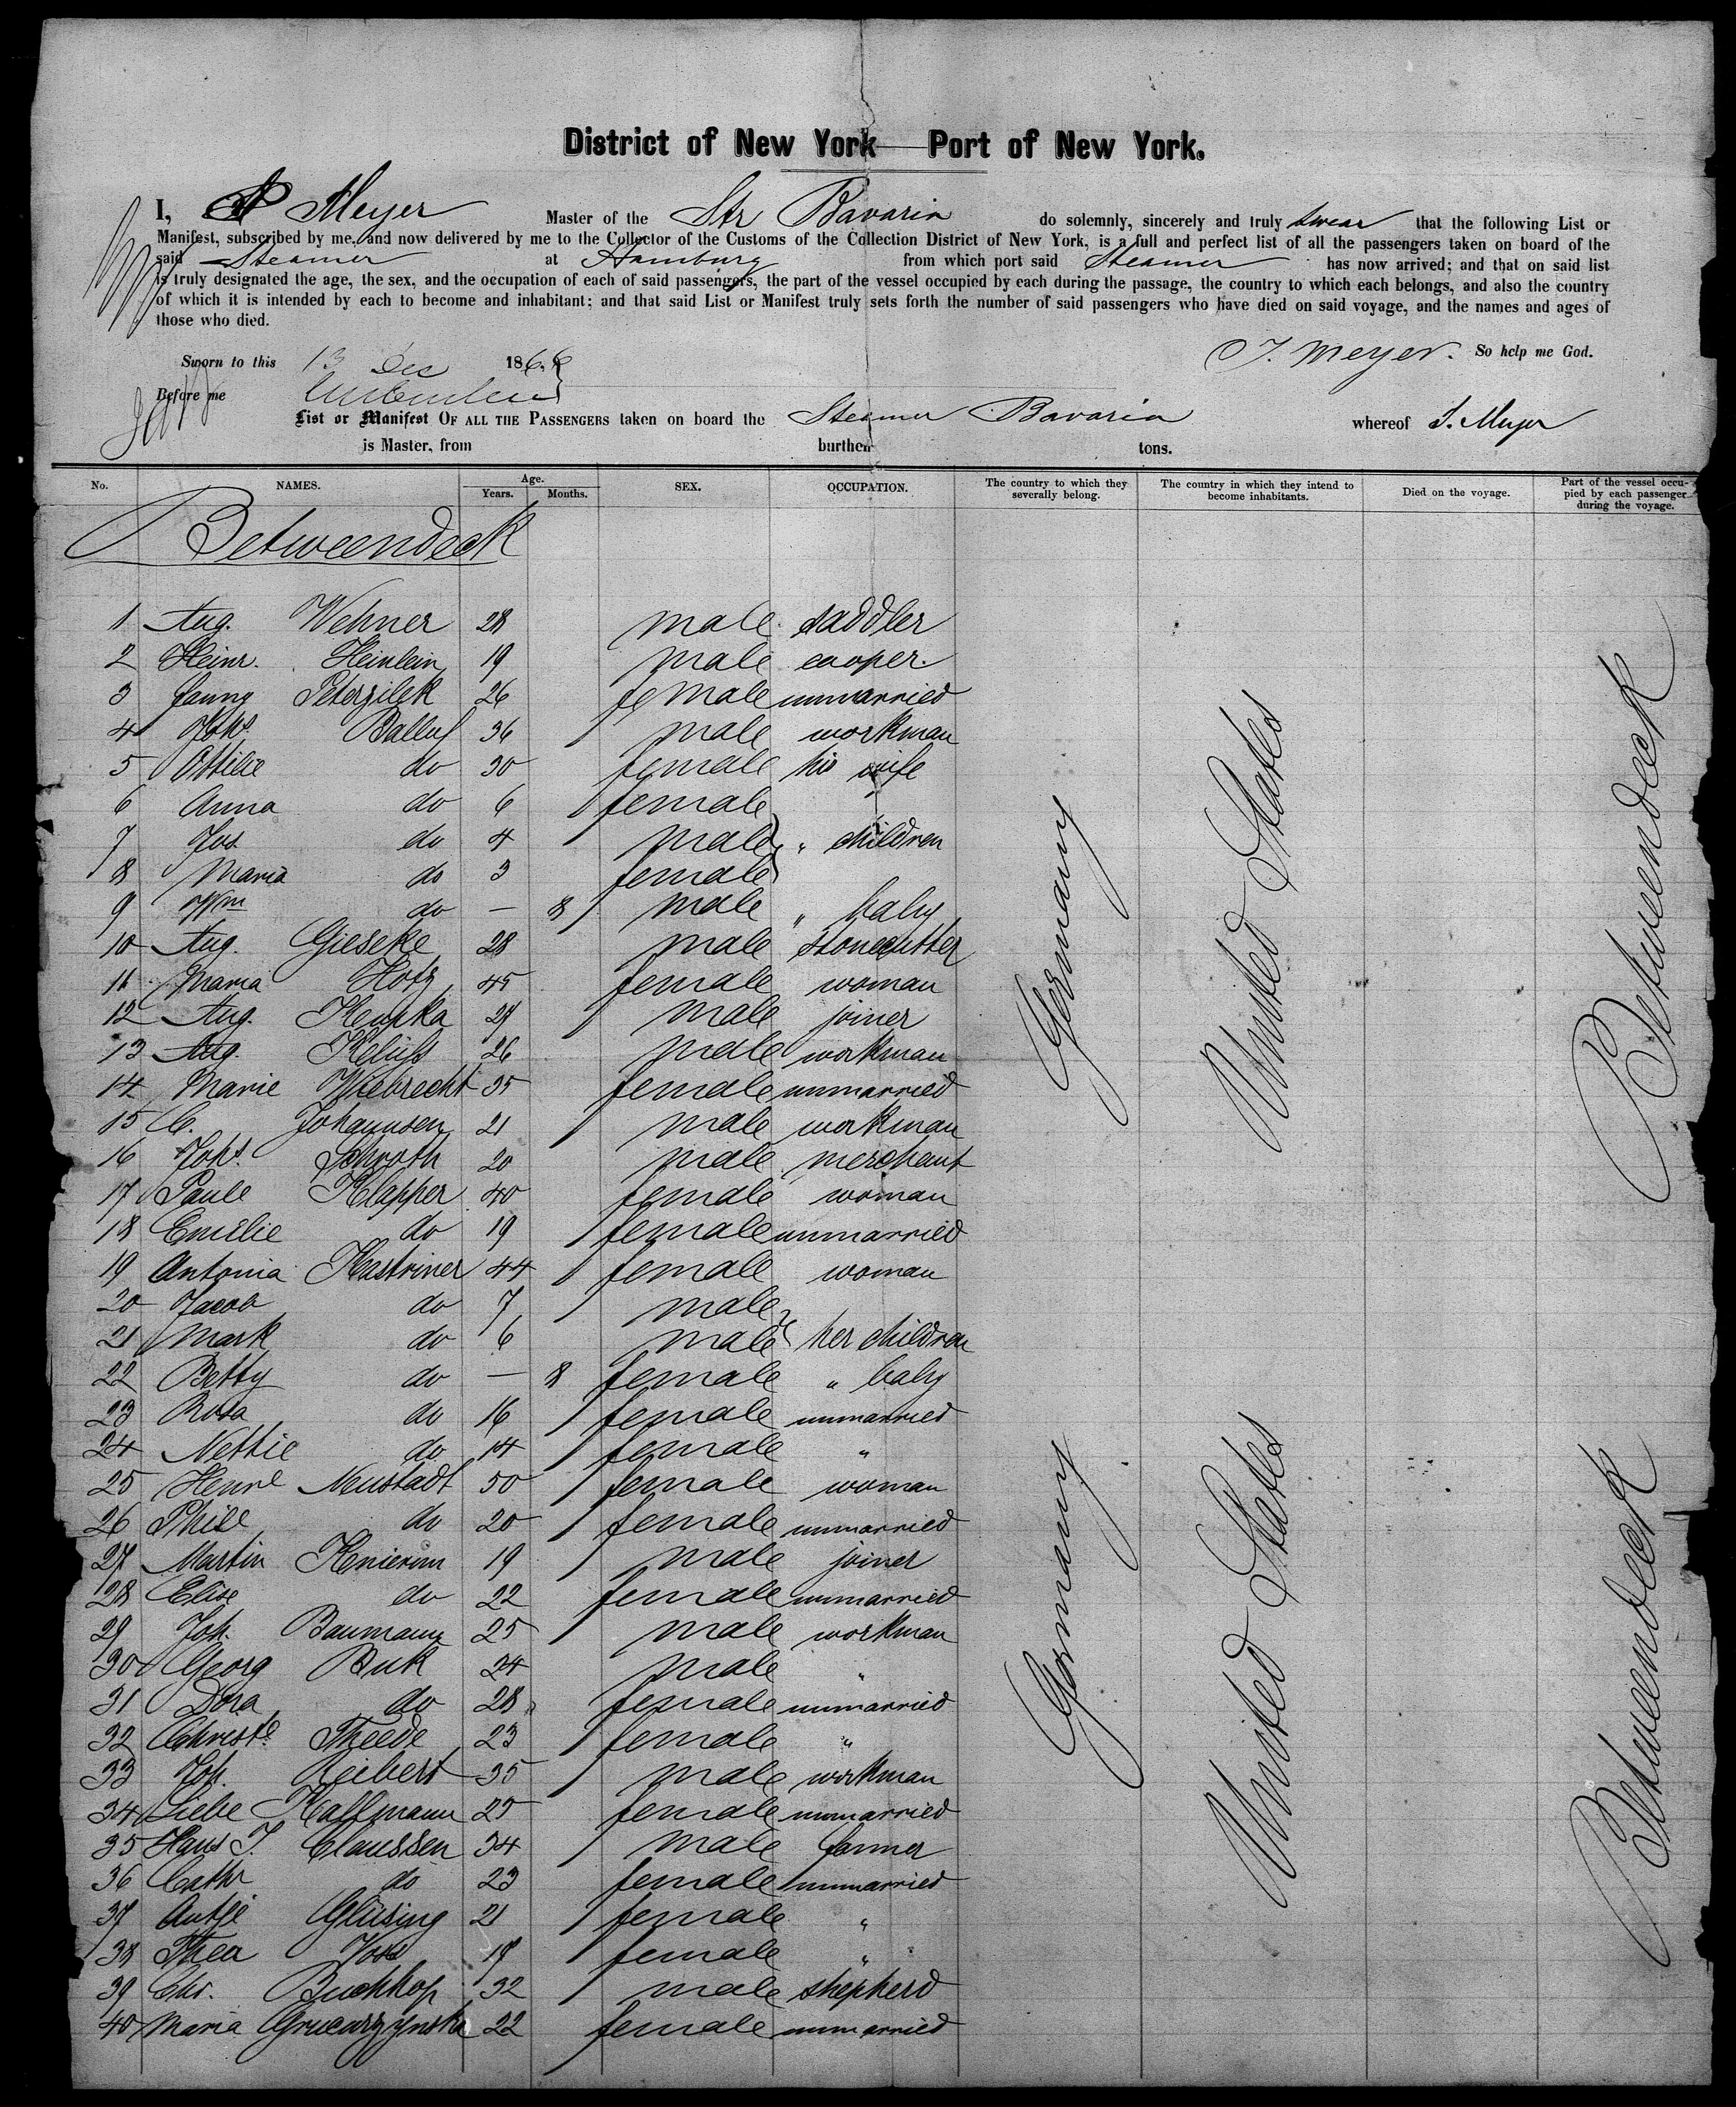 District of New York — Port of New York.
I, Meyer Master of the Str Bavaria do solemnly, sincerely and truly swear that the following List or
Manifest, subscribed by me, and now delivered by me to the Collector of the Customs of the Collection District of New York, is a full and perfect list of all the passengers taken on board of the
said Steamer at Hamburg from which port said Steamer has now arrived; and that on said list
is truly designated the age, the sex, and the occupation of each of said passengers, the part of the vessel occupied by each during the passage, the country to which each belongs, and also the country
of which it is intended by each to become and inhabitant; and that said List or Manifest truly sets forth the number of said passengers who have died on said voyage, and the names and ages of
those who died.
Sworn to this 13 Dec 1866 J. Meyer. So help me God.
Before me
List or Manifest OF ALL THE PASSENGERS taken on board the Steamer Bavaria whereof J. Meyer
is Master, from burthen tons.
No. NAMES. Age. Years. Months. SEX. OCCUPATION. The country to which they severally belong. The country in which they intend to become inhabitants. Died on the voyage. Part of the vessel occupied by each passenger during the voyage.
Betweendeck
1 Aug. Wehner 28 male saddler
2 Heinr. Heinlein 19 male cooper.
3 Fanny Petersilek 26 female unmarried
4 Johs. Balluf 36 male workman
5 Ottilie do 30 female his wife
6 Anna do 6 female
7 Jos. do 4 male " children
8 Maria do 3 female
9 Wm do — 8 male " baby
10 Aug. Gieseke 28 male stonecutter
11 Maria Hotz 45 female woman
12 Aug. 29 male joiner
13 Aug. 26 male workman
14 Marie Wiebrecht 35 female unmarried
15 C. Johannsen 21 male workman
16 Johs. Schroth 20 male merchant
17 Paule Klapper 40 female woman
18 Emilie do 19 female unmarried
19 Antonia Kastriner 44 female woman
20 Jacob do 7 male
21 Mark do 6 male her children
22 Betty do — 8 female " baby
23 Rosa do 16 female unmarried
24 Nettie do 14 female "
25 Henre Neustadt 50 female woman
26 Phile do 20 female unmarried
27 Martin Knierim 19 male joiner
28 Elise do 22 female unmarried
29 Joh. Baumann 25 male workman
30 Georg Buk 24 male "
31 Dora do 28 female unmarried
32 Christe. Theede 23 female "
33 Joh. Riebert 35 male workman
34 Liebe Kaffmann 25 female unmarried
35 Hans J. Claussen 34 male farmer
36 Cathr do 23 female unmarried
37 Antje Glüsing 21 female "
38 Thea Voss 19 female "
39 Chr. Buchhop 32 male shepherd
40 Maria 22 female unmarried
Germany
United States
Betweendeck
Germany
United States
Betweendeck